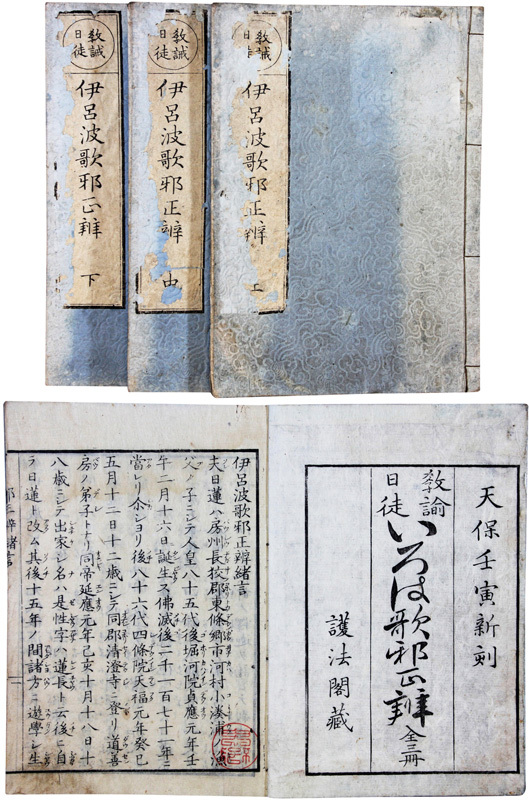 教誡
日徒
伊呂波歌邪正辨 上
教誡
日徒
伊呂波歌邪正辨 中
教誡
日徒
伊呂波歌邪正辨 下
天保壬寅新刻
教諭
日徒
いろは歌邪正辨 全三冊
護法閣藏
伊呂波歌邪正辨緒言
夫日蓮ハ房州長狹郡東條鄉市河村小湊浦ノ漁
父ノ子ニシテ人皇八十五代後堀河院貞應元年壬
午二月十六日誕生ス佛滅後二千一百七十一年ニ
當レリ尒シヨリ後八十六代四條院天福元年癸巳
五月十二日十二歲ニシテ同郡清澄寺ニ登リ道善
房ノ弟子トナリ同帝延應元年己亥十月十八日十
八歲ニシテ出家シ名ハ是性字ハ蓮長ト云後ニ自
ラ日蓮ト改ム其後十五年ノ間諸方ニ遊學シ生